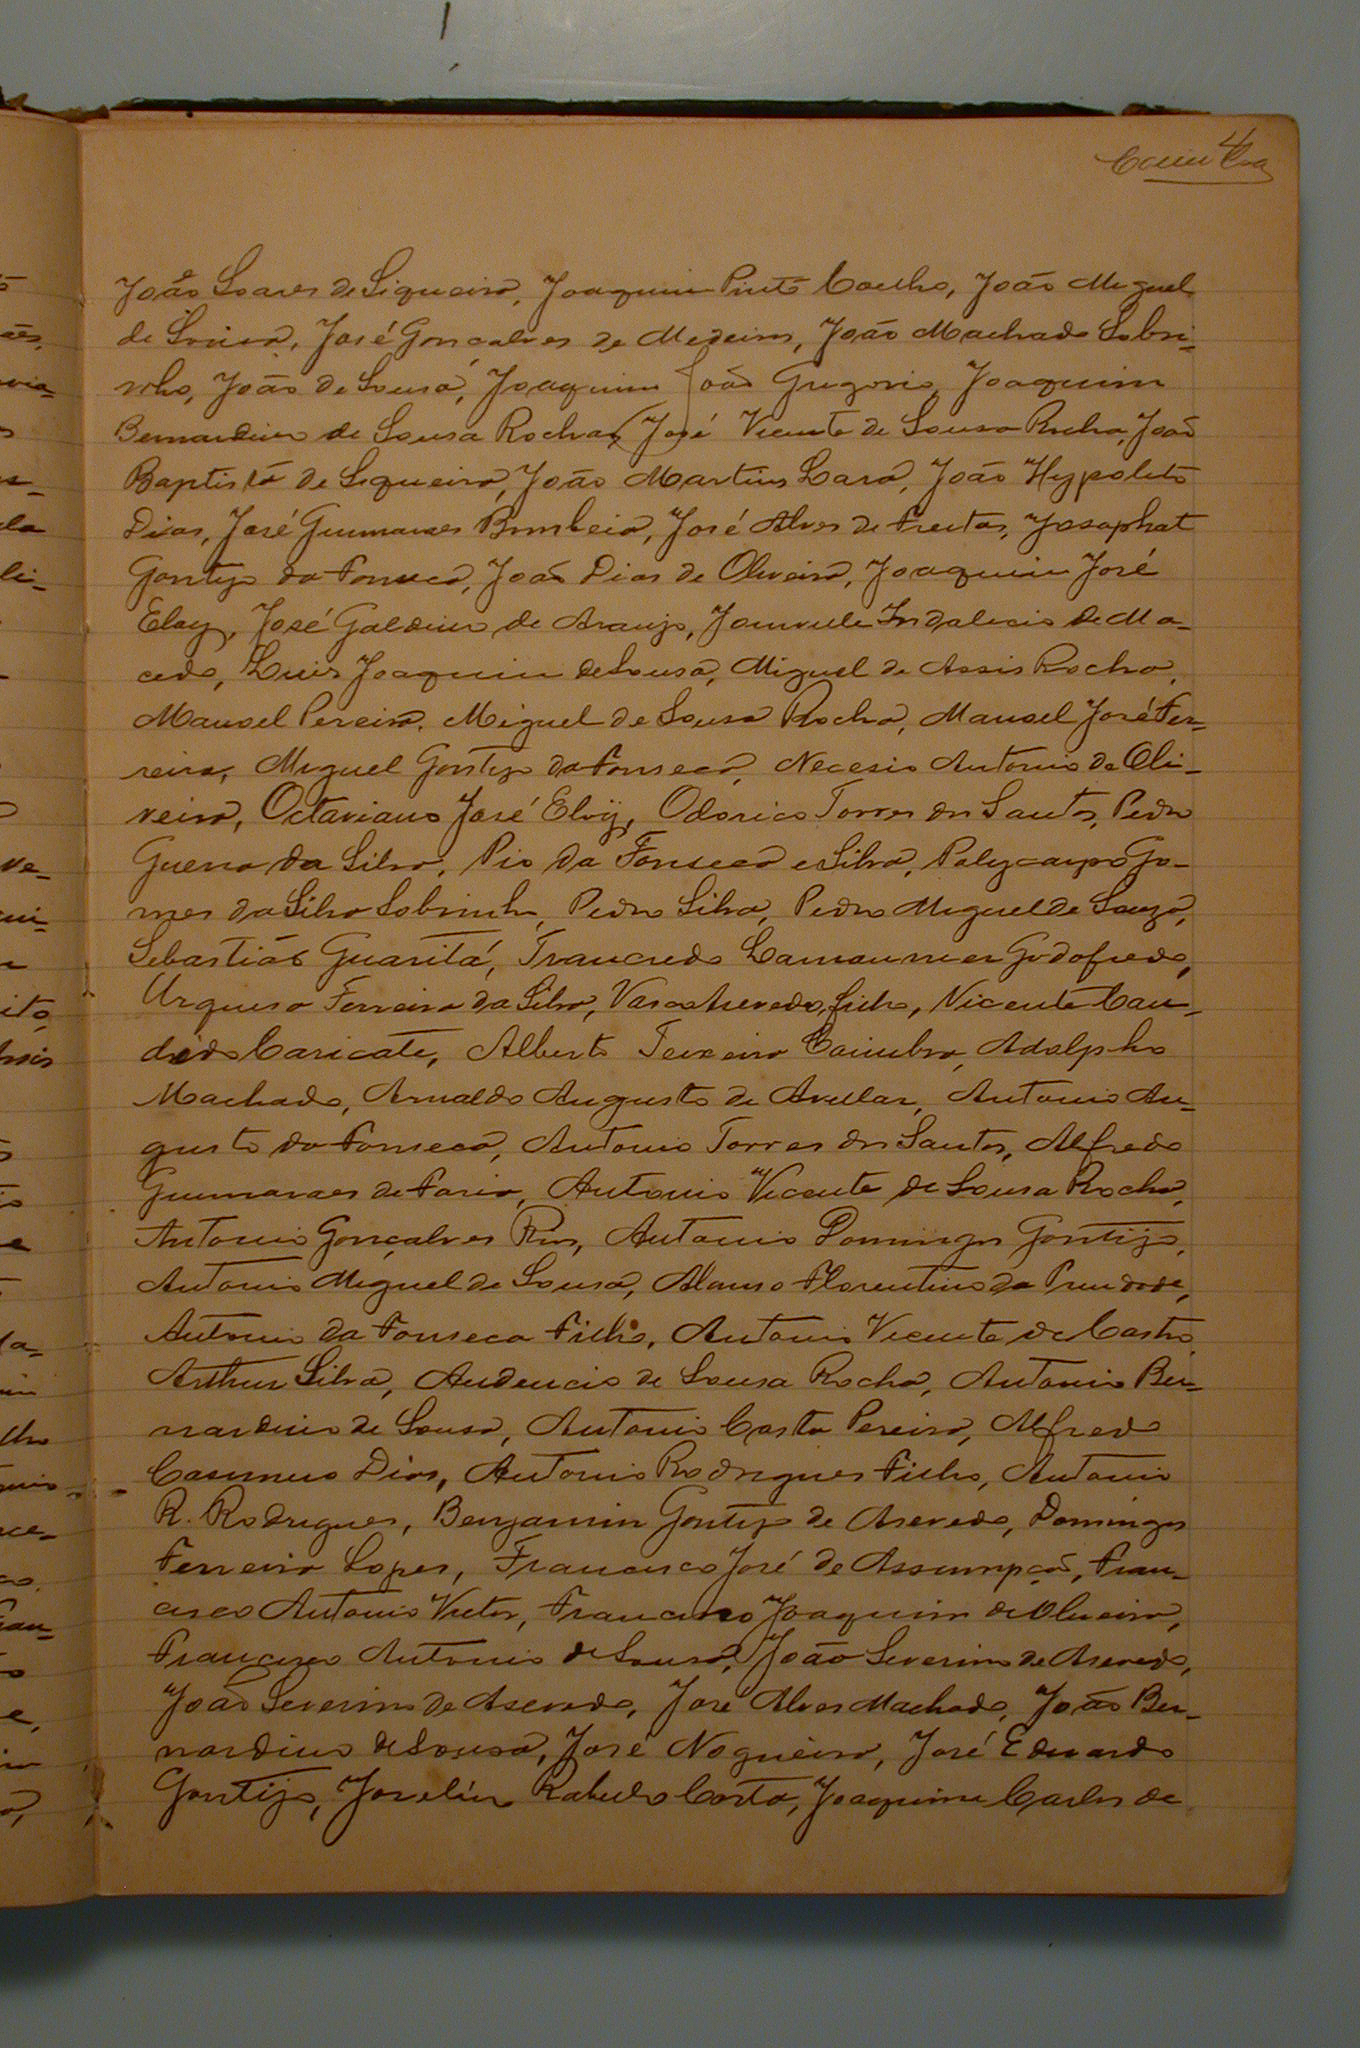 4
João Soares de Siqueira, Joaquim Pinto Coelho, João Miguel
de Sousa, José Gonçalves de Medeiros, João Machado Sobri-
nho, João de Sousa, Joaquim João Gregorio, Joaquim
Bernardino de Sousa Rocha, José Vicente de Sousa Rocha, João
Baptista de Siqueira, João Martins Lara, João Hypolito
Dias, José Guimaraes Bombeia, José Alves de Freitas, Josaphat
Gontijo da Fonseca, João Dias de Oliveira, Joaquim José
Eloy, José Galdino de Araujo, Indalecio de Ma-
cedo, Luis Joaquim de Sousa, Miguel de Assis Rocha,
Manoel Pereira, Miguel de Sousa Rocha, Manoel José Fer-
reira, Miguel Gontijo da Fonseca, Necesio Antonio de Oli-
veira, Octaviano José Eloÿ, Odorico Torres dos Santos, Pedro
Guerra da Silva, Pio da Fonseca e Silva, Polycarpo Go-
mes da Silva Sobrinho, Pedro Silva, Pedro Miguel de Souza,
Sebastião Guaritá, Trancredo Lamounier Godofredo,
Urquisa Ferreira da Silva, Vasco Azevedo filho, Vicente Can-
dido Caricate, Alberto Teixeira Coimbra, Adolpho
Machado, Arnaldo Augusto de Avellar, Antonio Au-
gusto da Fonseca, Antonio Torres dos Santos, Alfredo
Guimaraes de Faria, Antonio Vicente de Sousa Rocha,
Antonio Gonçalves Rios, Antonio Domingos Gontijo,
Antonio Miguel de Sousa, Alonso Florentino da Piedade,
Antonio da Fonseca Filho, Antonio Vicente de Castro,
Arthur Silva, Audencio de Sousa Rocha, Antonio Ber-
nardino de Sousa, Antonio Costa Pereira, Alfredo
Casimiro Dias, Antonio Rodrigues Filho, Antonio
R. Rodrigues, Benjamin Gontijo de Asevedo, Domingos
Ferreira Lopes, Francisco José de Assumpção, Fran-
cisco Antonio Victor, Francisco Joaquim de Oliveira,
Francisco Antonio de Sousa, João Severino de Asevedo,
João Severino de Asevedo, José Alves Machado, João Ber-
nardino de Sousa, José Nogueira, José Eduardo
Gontijo, Joselin Rabello Costa, Joaquim Carlos de